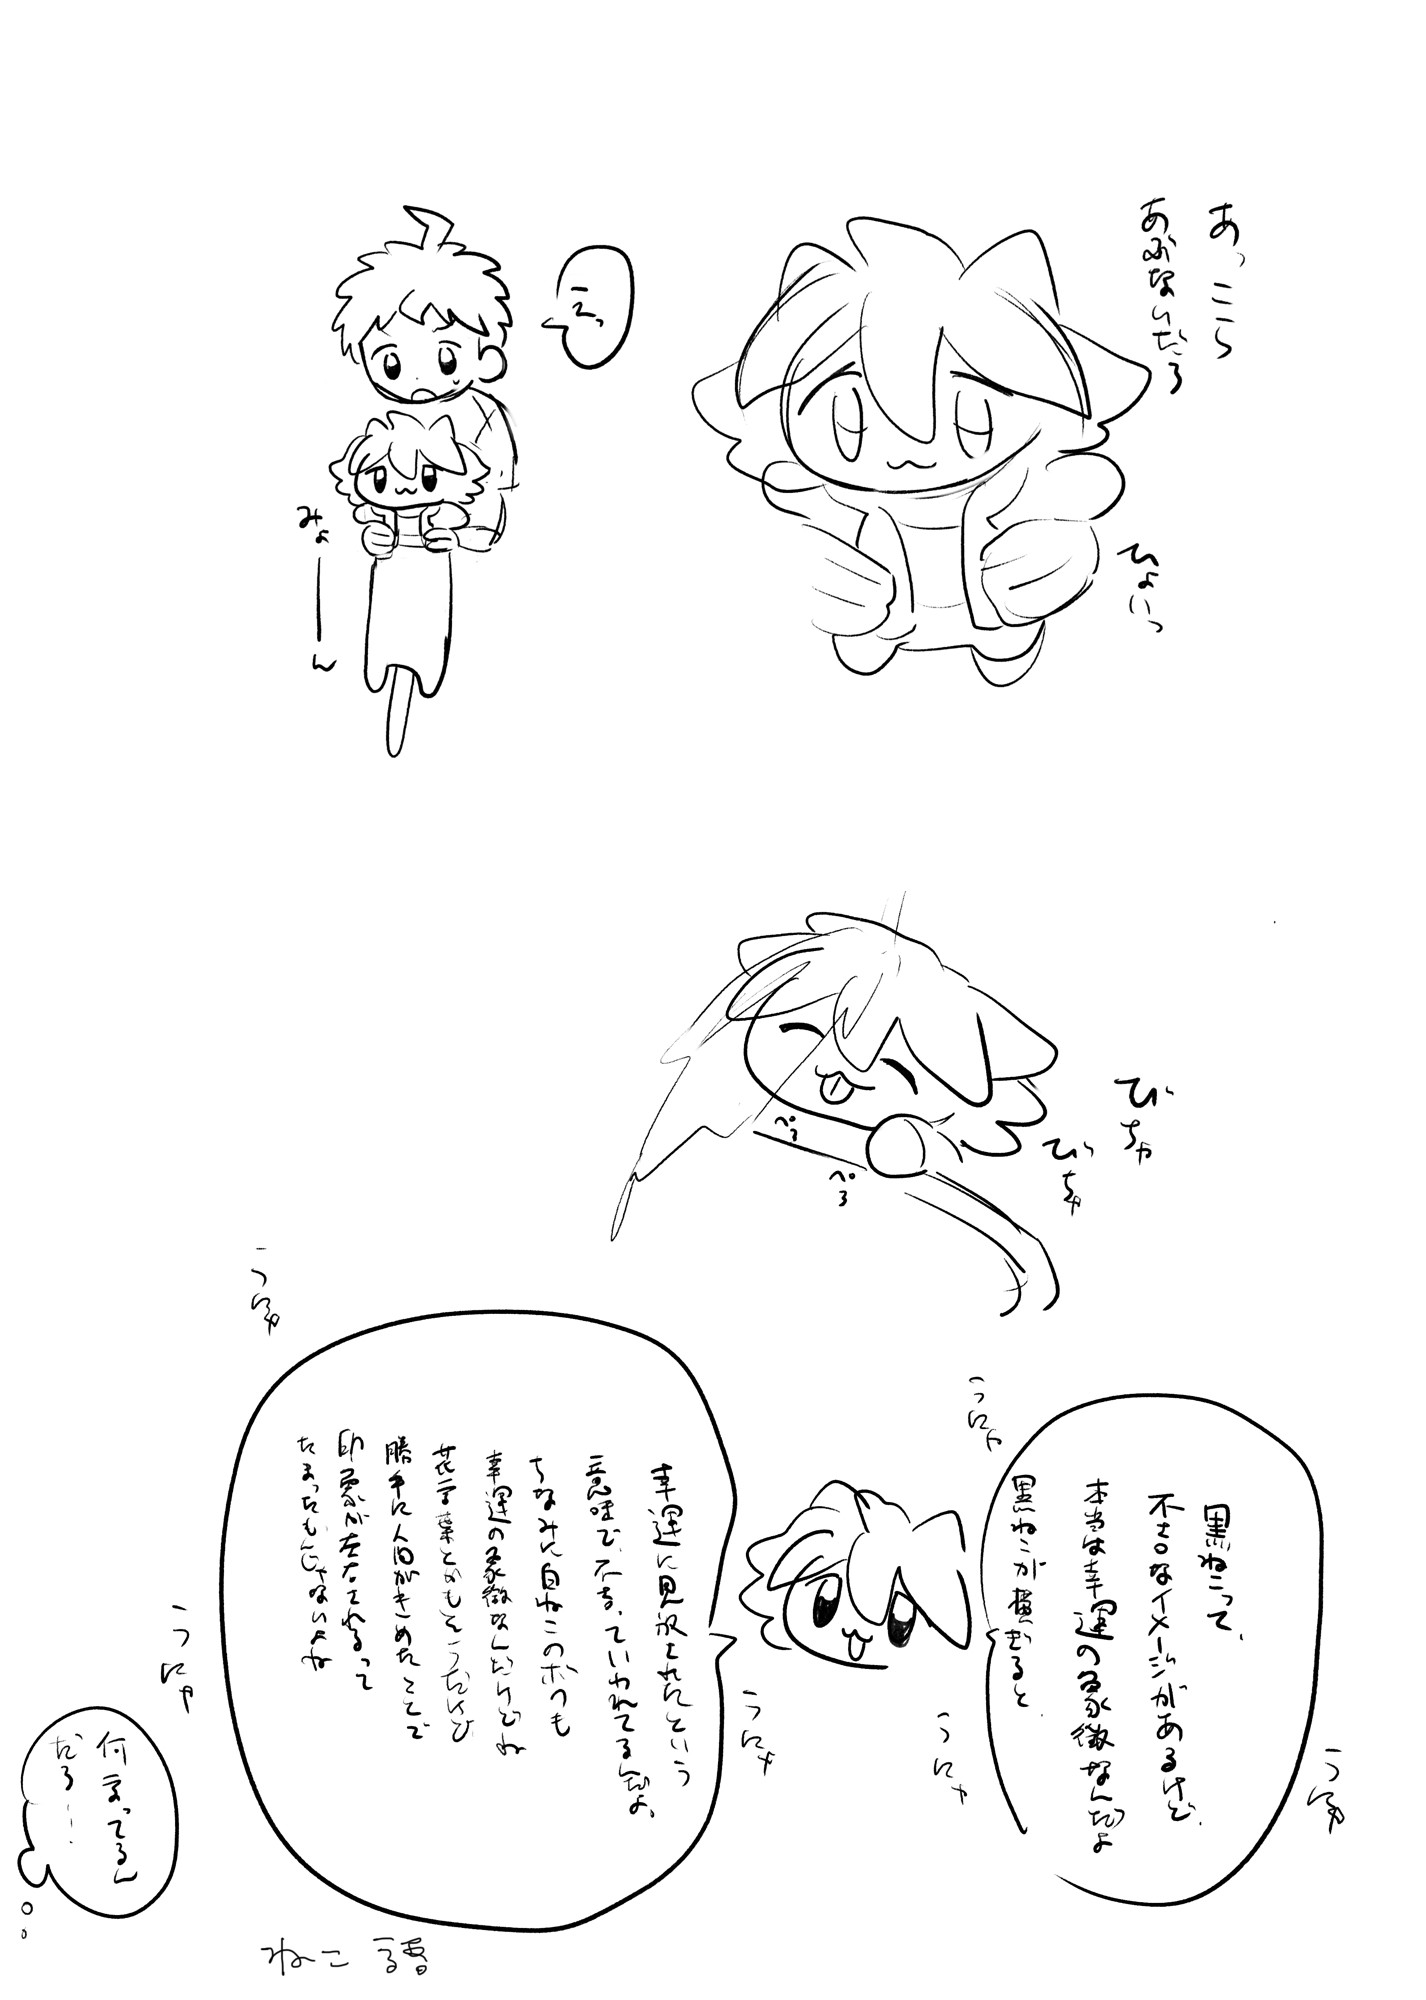 あっこら
あぶないだろ
ひょいっ
えっ
みょーん
びちゃ
びちゃ
ぺろ
ぺろ
うにゃ
うにゃ
黒ねこって、
不吉なイメージがあるけど、
本当は幸運の象徴なんだよ
黒ねこが横ぎると、
うにゃ
うにゃ
うにゃ
幸運に見放されたという
意味で、不吉、っていわれてるんだよ、
ちなみに白ねこのボクも
幸運の象徴なんだけどね
花言葉とかもそうだけど
勝手に人間がきめたことで
印象が左右されるって
たまったもんじゃないよね
うにゃ
何言ってるん
だろ…
ねこ語